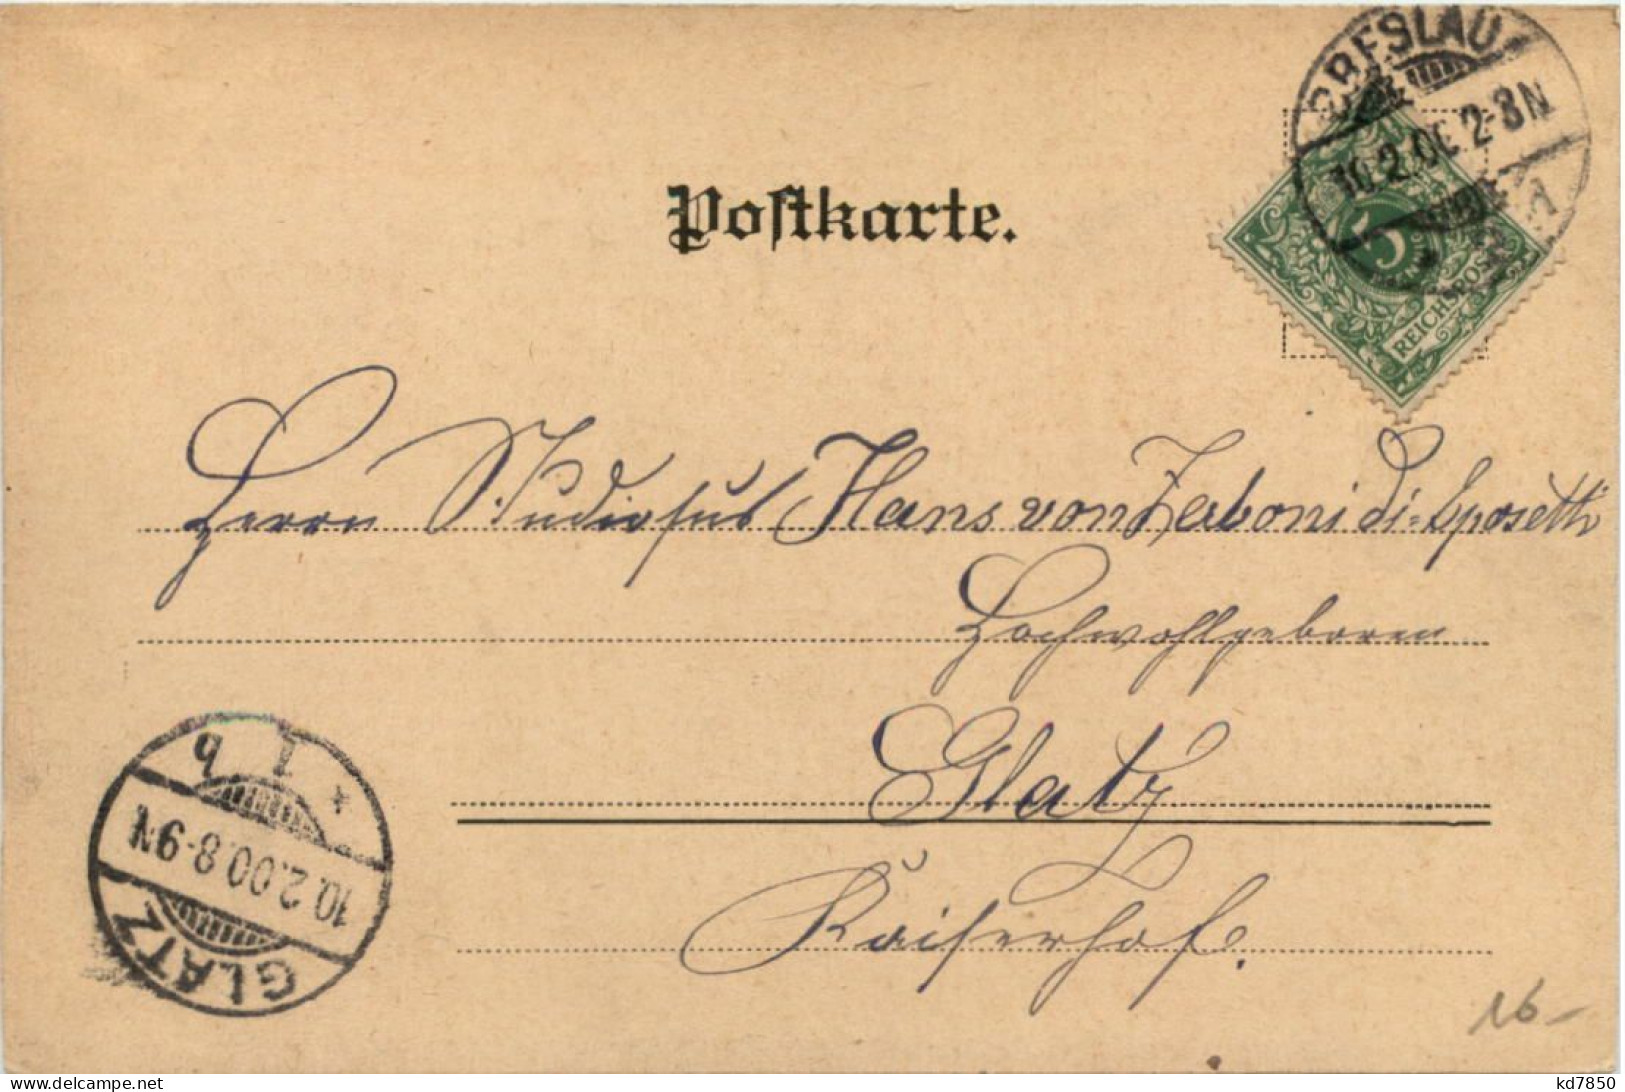 BRESLAU
10.2.00. 2-3N
1
Postkarte.
5
REICHSPOST
Herrn Studiosus Hans von Zaboni di Sposetti
Hochwohlgeboren
Glatz
Kaiserhof.
GLATZ
10.2.00.8-9N
1 b
16-
kd7850